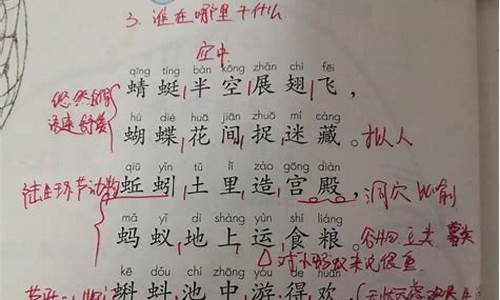 3. 谁在哪里干什么
空中
qīng tíng bàn kōng zhǎn chì fēi
蜻蜓半空展翅飞，
悠然自得
hú dié huā jiān zhuō mí cáng
蝴蝶花间捉迷藏。拟人
qiū yǐn tǔ lǐ zào gōng diàn
陆生环节动物 蚯蚓土里造宫殿，洞穴 比喻
mǎ yǐ dì shàng yùn shí liáng
蚂蚁地上运食粮。
对小蚂蚁来说很重
kē dǒu chí zhōng yóu de huān
蝌蚪池中游得欢